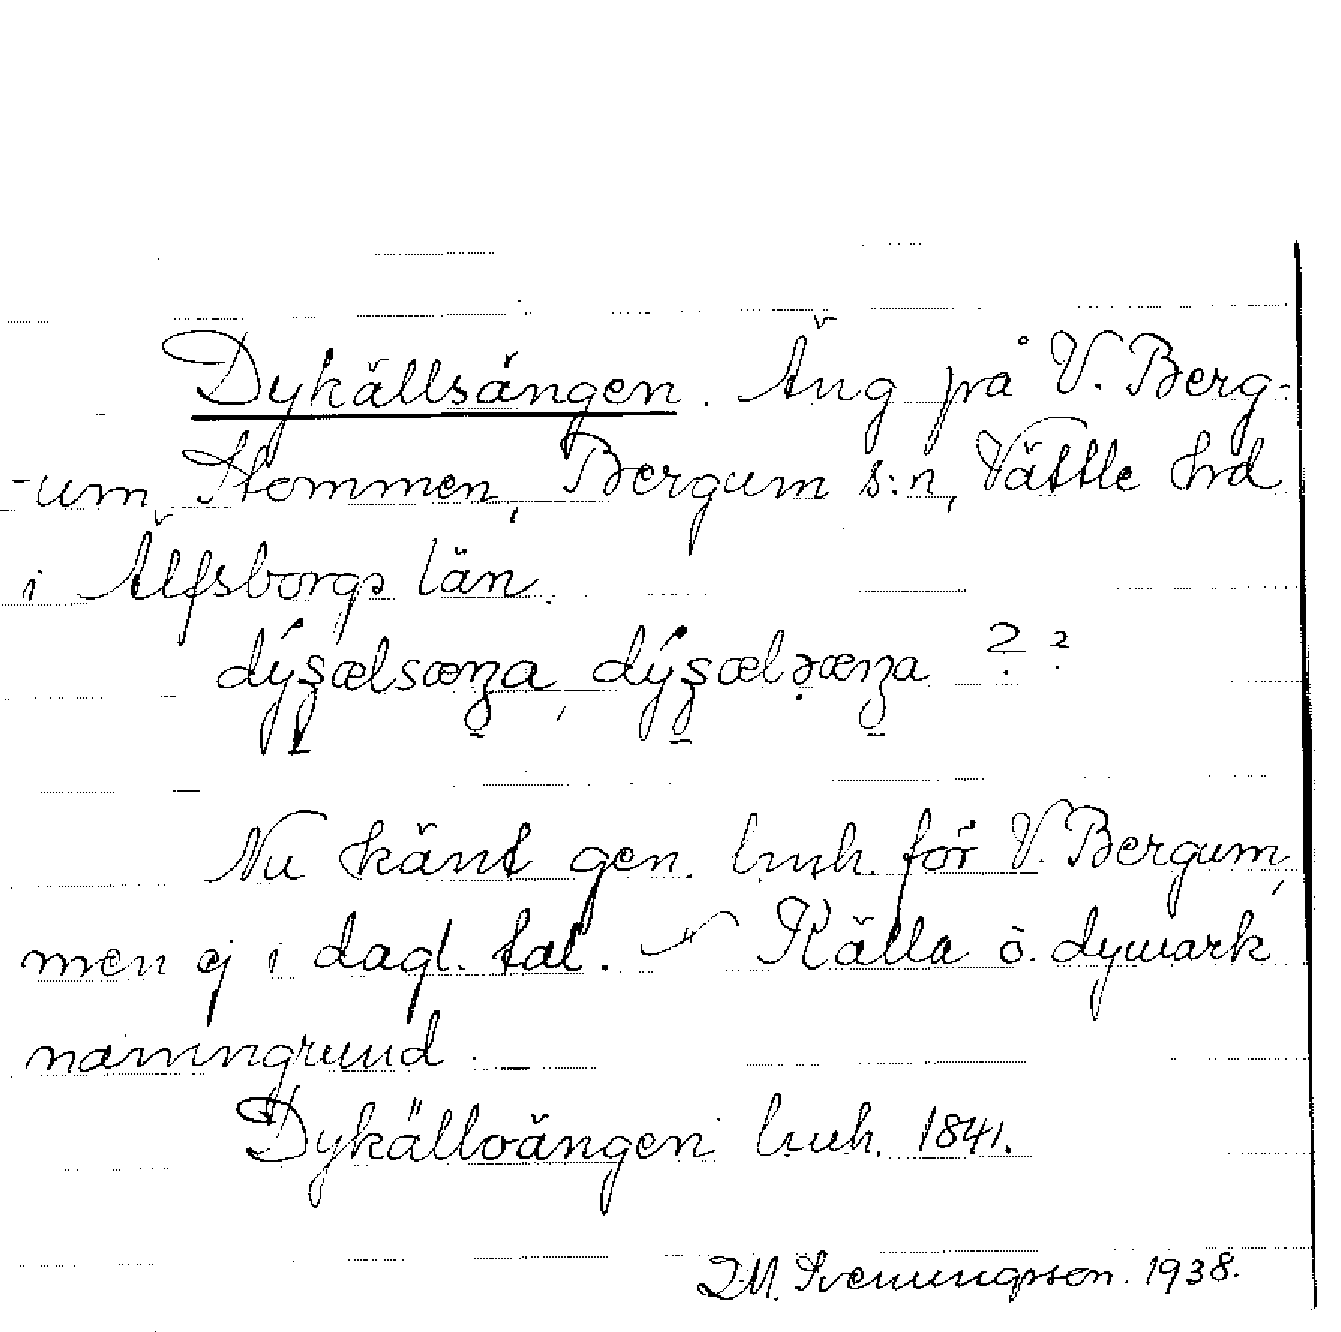 Dykällsängen. Äng på V. Berg-
-um Stommen, Bergum s:n, Vättle hrd
i Älfsborgs län.
dýȿælsæŋa, dýȿælsæŋa ? ?
Nu känt gen. lmh. för V. Bergum,
men ej i dagl. tal. Källa o. dymark
namngrund.
Dykällsängen lmh. 1841.
I.M. Svenungsson. 1938.